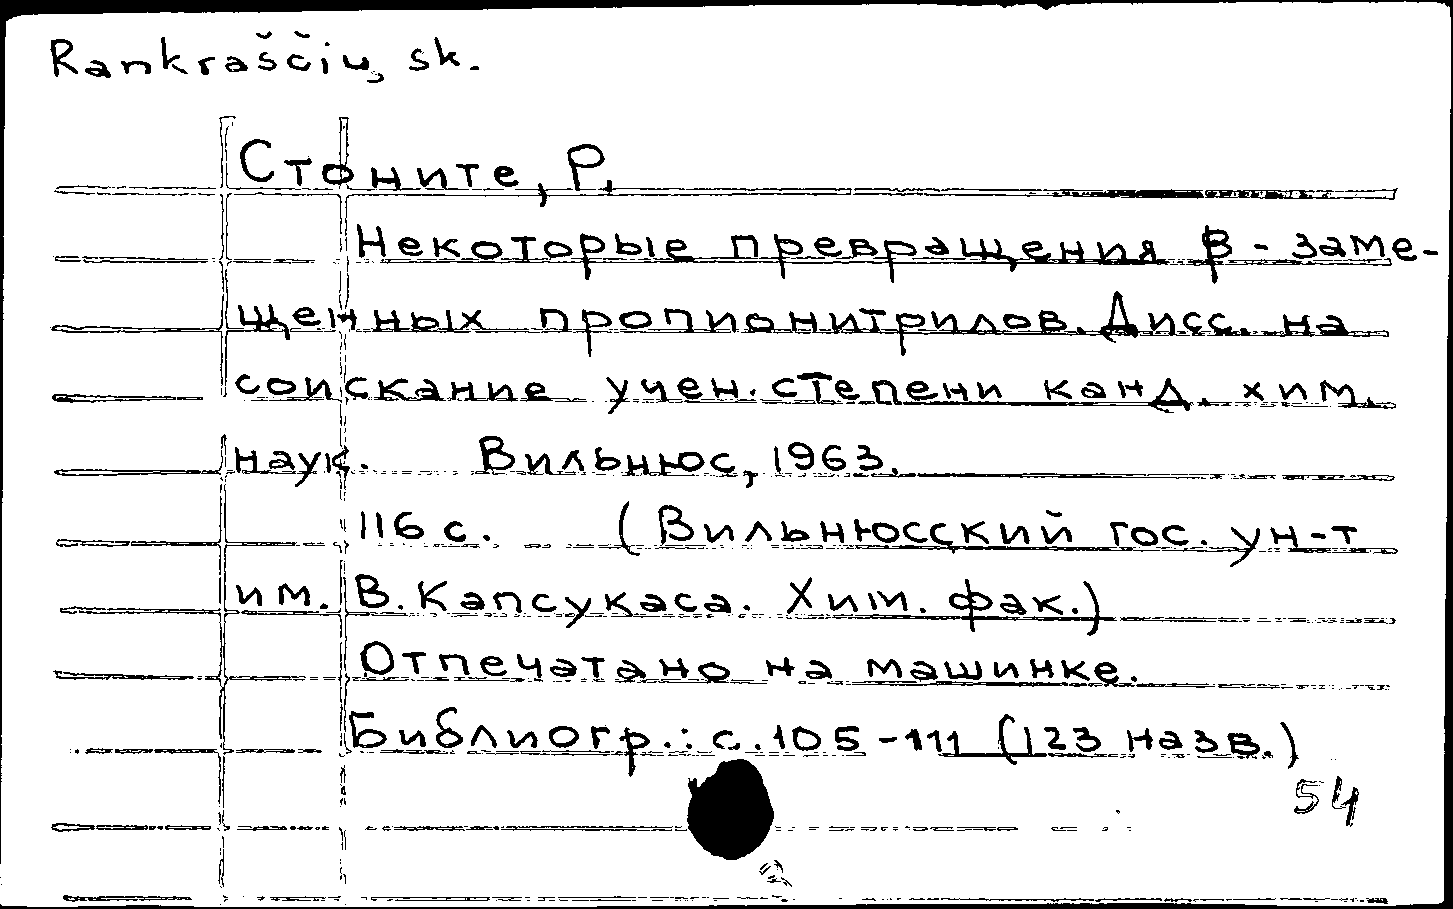 Rankraščių sk.
Стоните, Р.
Некоторые превращения β - заме-
щенных пропионитрилов. Дисс. на
соискание учен. степени канд. хим.
наук. Вильнюс, 1963.
116 с. (Вильнюсский гос. ун-т
им. В. Капсукаса. Хим. фак.)
Отпечатано на машинке.
Библиогр.: с. 105-111 (123 назв.)
54